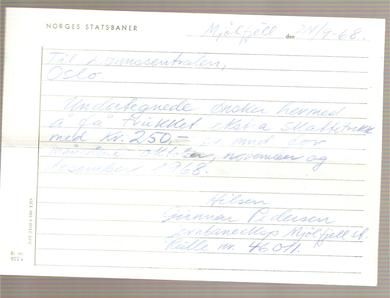 NORGES STATSBANER
Mjölfjell den 24/9-68.
Til Lønnssentralen,
Oslo
Undertegnede ønsker hermed
å få trukket ekstra skattetrekk
med Kr. 250,- pr. mnd for
oktober, november og
desember 1968.
Hilsen
Gunnar Pedersen
Mjölfjell st.
Rulle nr. 46011.